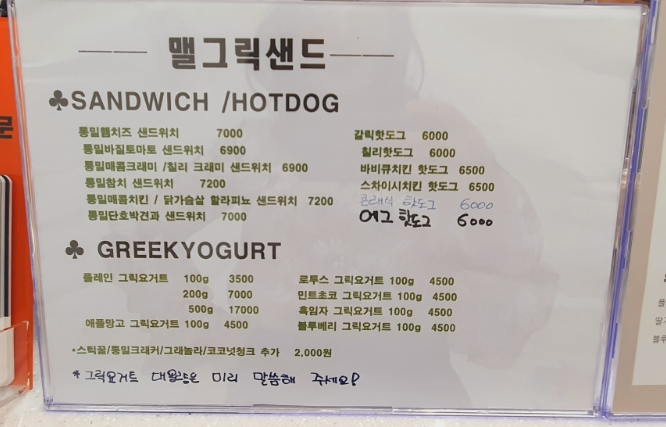 맬그릭샌드
♣SANDWICH /HOTDOG
통밀햄치즈 샌드위치 7000
통밀바질토마토 샌드위치 6900
통밀매콤크래미 /칠리 크래미 샌드위치 6900
통밀참치 샌드위치 7200
통밀매콤치킨 / 닭가슴살 할라피뇨 샌드위치 7200
통밀단호박견과 샌드위치 7000
갈릭핫도그 6000
칠리핫도그 6000
바비큐치킨 핫도그 6500
스차이시치킨 핫도그 6500
클래식 핫도그 6000
에그 핫도그 6000
♣ GREEKYOGURT
플레인 그릭요거트 100g 3500
200g 7000
500g 17000
애플망고 그릭요거트 100g 4500
로투스 그릭요거트 100g 4500
민트초코 그릭요거트 100g 4500
흑임자 그릭요거트 100g 4500
블루베리 그릭요거트 100g 4500
*스틱꿀/통밀크래커/그래놀라/코코넛청크 추가 2,000원
* 그릭요거트 대용량은 미리 말씀해 주세요!